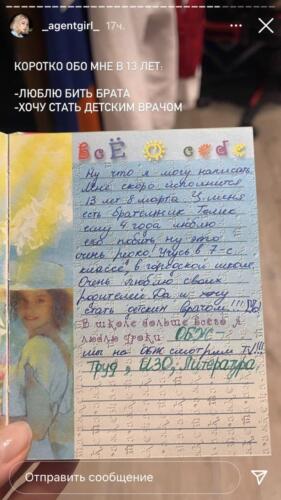 _agentgirl_ 17ч.
КОРОТКО ОБО МНЕ В 13 ЛЕТ:
-ЛЮБЛЮ БИТЬ БРАТА
-ХОЧУ СТАТЬ ДЕТСКИМ ВРАЧОМ
ВСЁ О себе
Ну что я могу написать
Мне скоро исполнится
13 лет 8 марта. У меня
есть брательник
ему 4 года люблю
его побить ну это
очень редко. Учусь в 7-с
классе, в городской школе.
Очень люблю своих
родителей. Да и хочу
стать детским врачом!!!
В школе больше всего я
люблю уроки ОБЖ-
мы на ОБЖ смотрим TV!!!
Труд, ФИЗО, Литература
Отправить сообщение